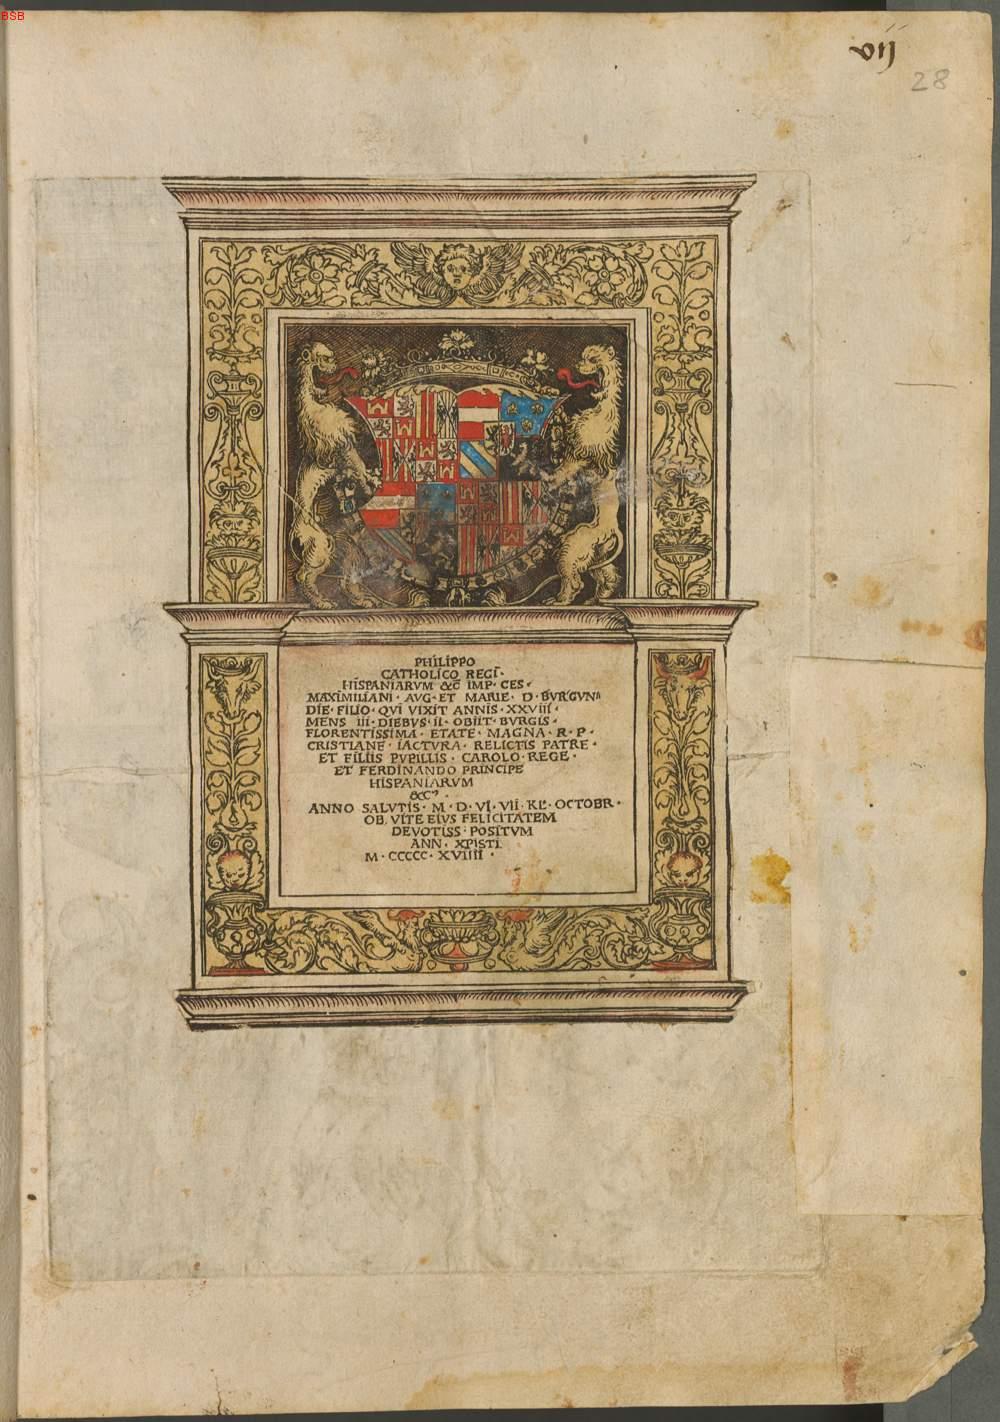 BSB
vij
28
PHILIPPO
CATHOLICO REGI·
HISPANIARVM &C̄ IMP· CES·
MAXIMILIANI· AVG· ET MARIE· D· BVRGVN‖
DIE· FILIO· QVI VIXIT ANNIS· XXVIII·
MENS III· DIEBVS· II· OBIIT· BVRGIS·
FLORENTISSIMA· ETATE· MAGNA· R· P·
CRISTIANE· IACTVRA· RELICTIS PATRE·
ET FILIIS PVPILLIS· CAROLO· REGE·
ET FERDINANDO PRINCIPE
HISPANIARVM
&Cꝰ·
ANNO SALVTIS· M· D· VI· VII· KL̄· OCTOBR·
OB VITE EIVS FELICITATEM
DEVOTISS· POSITVM
ANN· XPISTI
M· CCCCC· XVIIII·